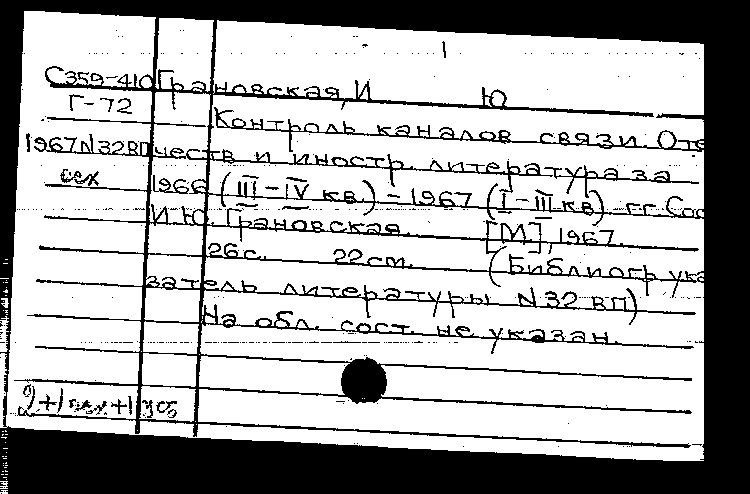 1
С359-410 Грановская, И Ю
Г-72 Контроль каналов связи. Оте
1967 N32вп честв и иностр. литература за
1966 (III-IV кв.) - 1967 (I-III кв) гг. Сос
И.Ю. Грановская. [М], 1967.
26с. 22см. (Библиогр. ука
затель литературы N32 вп)
На обл. сост. не указан.
2+1